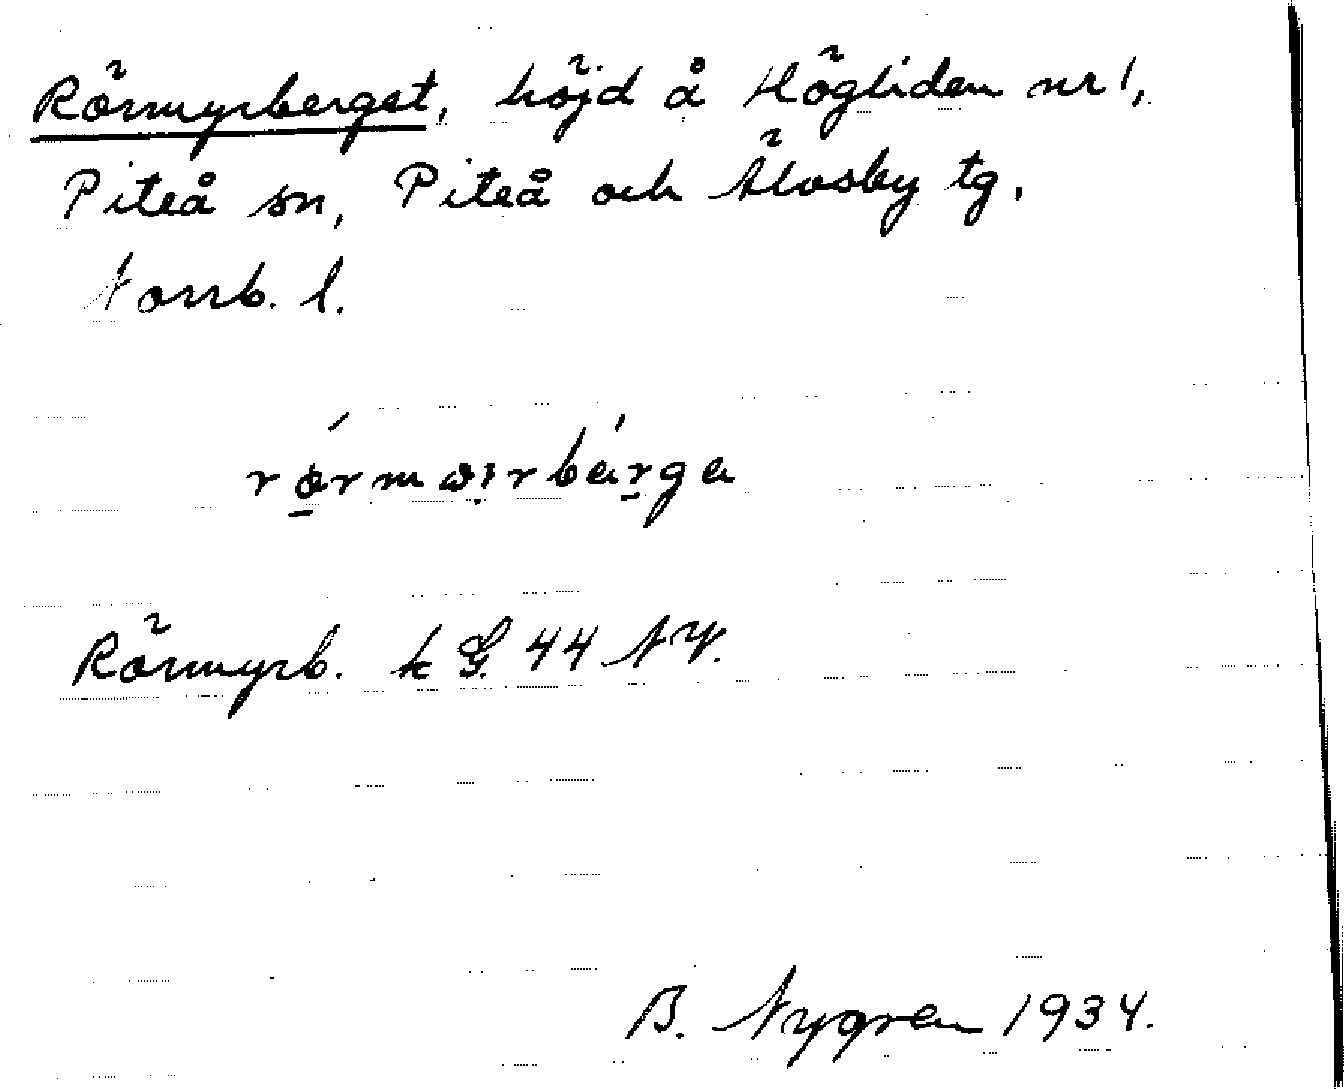 Rörmyrberget, höjd å Högliden nr 1,
Piteå sn, Piteå och Älvsby tg,
Norrb. l.
Rörmyrb. k G. 44 NV.
B. Nygren 1934.